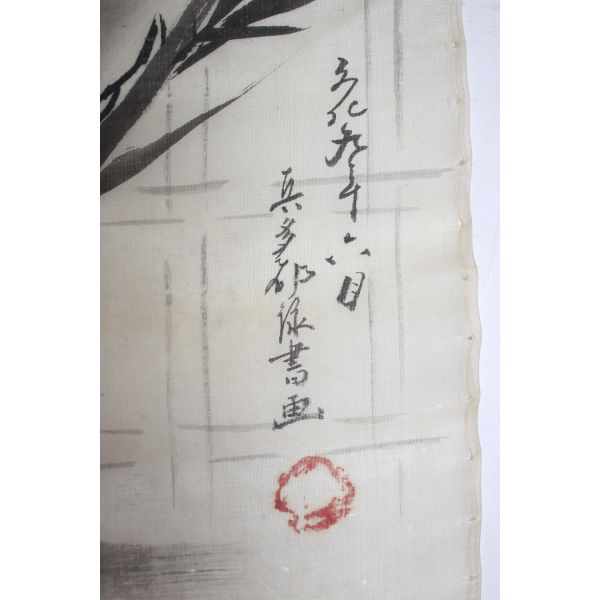 文化九年六月
真多郎派書画